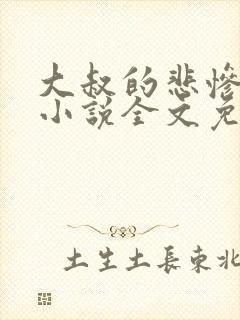 大叔的悲惨
小说全文免
土生土長東北